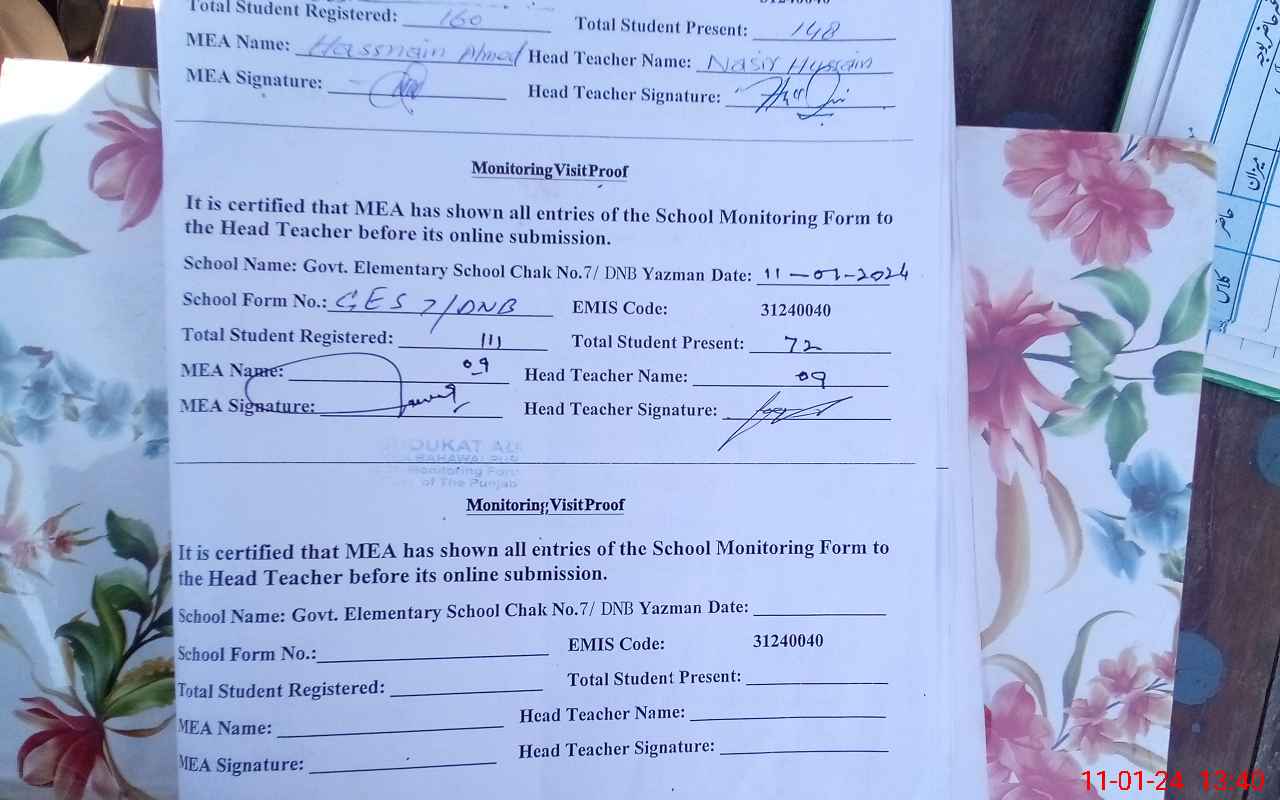 Total Student Registered: 160 Total Student Present: 148
MEA Name: Hassnain Ahmed Head Teacher Name: Nasir Hussain
MEA Signature: Head Teacher Signature:
Monitoring Visit Proof
It is certified that MEA has shown all entries of the School Monitoring Form to
the Head Teacher before its online submission.
School Name: Govt. Elementary School Chak No.7/ DNB Yazman Date: 11-01-2024
School Form No.: GES 7/DNB EMIS Code: 31240040
Total Student Registered: 111 Total Student Present: 72
MEA Name: 09 Head Teacher Name: 09
MEA Signature: Head Teacher Signature:
Monitoring Form
of The Punjab
Monitoring Visit Proof
It is certified that MEA has shown all entries of the School Monitoring Form to
the Head Teacher before its online submission.
School Name: Govt. Elementary School Chak No.7/ DNB Yazman Date:
School Form No.: EMIS Code: 31240040
Total Student Registered: Total Student Present:
MEA Name: Head Teacher Name:
MEA Signature: Head Teacher Signature:
میزان
حاضر
کلاس
11-01-24 13:40